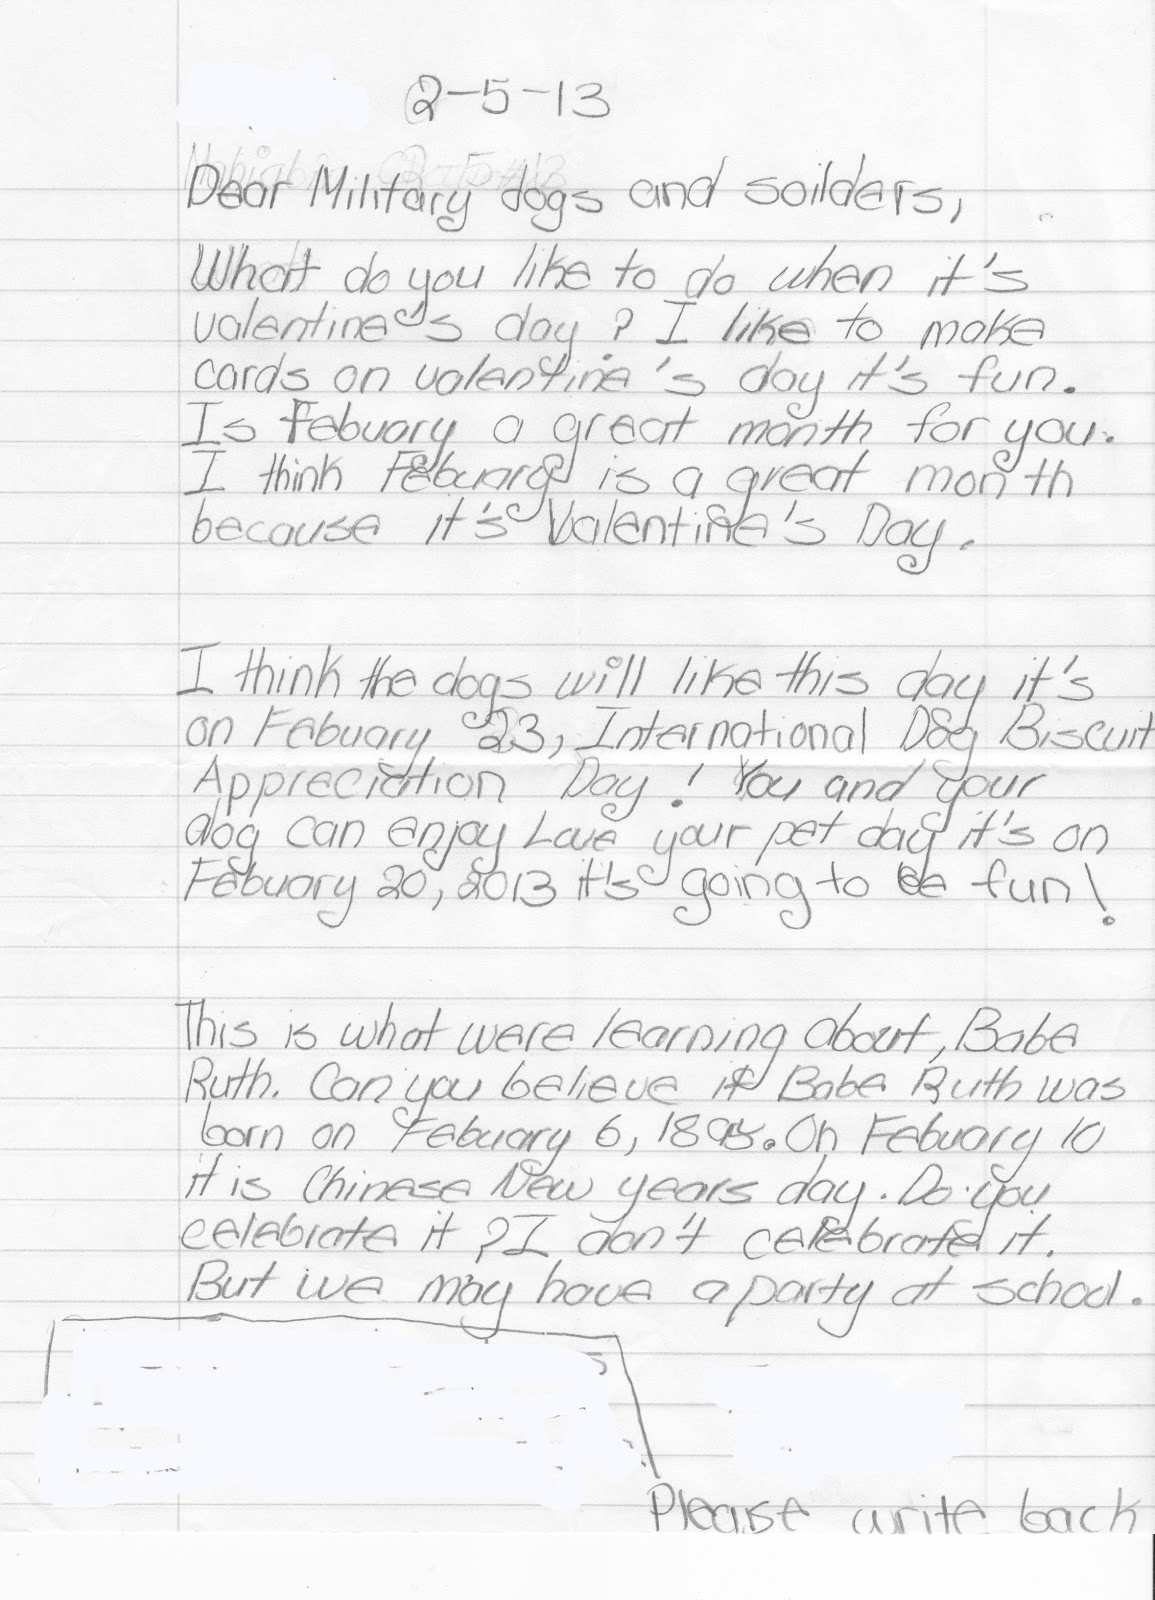 2-5-13
Dear Military dogs and soilders,
What do you like to do when it's
valentine's day? I like to make
cards on valentine's day it's fun.
Is Febuary a great month for you.
I think Febuary is a great month
because it's Valentine's Day.
I think the dogs will like this day it's
on Febuary 23, International Dog Biscuit
Appreciation Day! You and your
dog can enjoy Love your pet day it's on
Febuary 20, 2013 it's going to be fun!
This is what were learning about, Babe
Ruth. Can you believe it Babe Ruth was
born on Febuary 6, 1895. On Febuary 10
it is Chinese New years day. Do you
celebrate it? I don't celebrate it.
But we may have a party at school.
Please write back